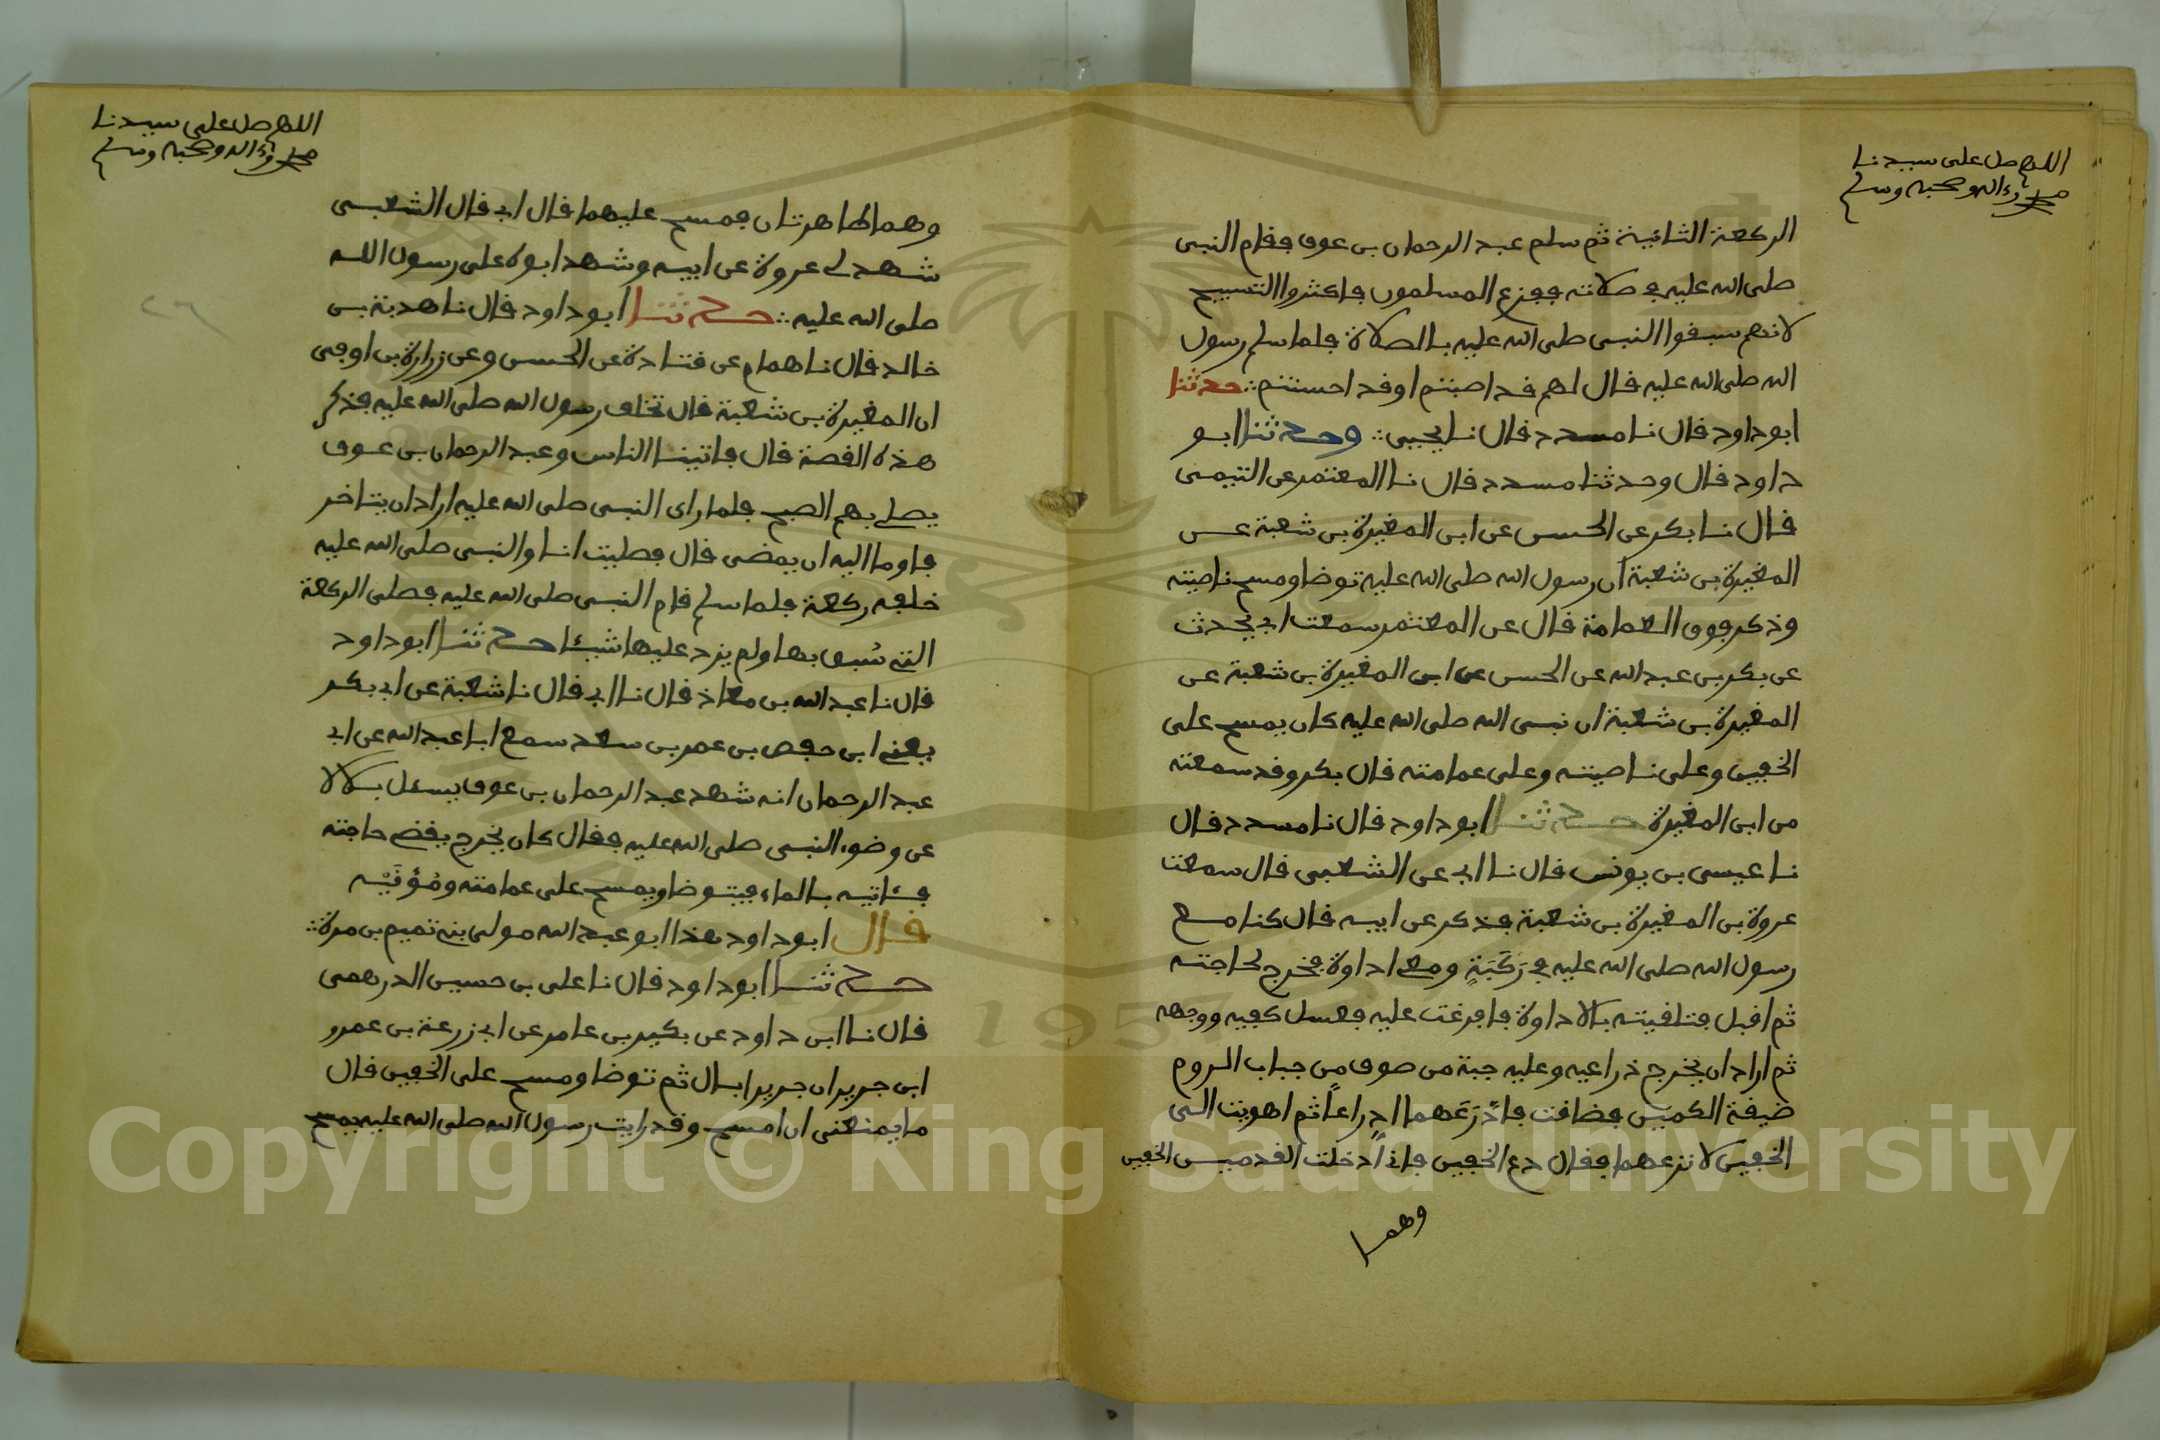 اللهم صل على سيدنا
محمد وءاله وصحبه وسلم
الركعة الثانية ثم سلم عبد الرحمان بن عوف فقام النبى
صلى الله عليه في صلاته ففزع المسلمون فاكثروا التسبيح
لانهم سبقوا النبى صلى الله عليه بالصلاة فلما سلم رسول
الله صلى الله عليه قال لهم قد اصبتم او قد احسنتم ∴ حدثنا
ابو داود قال نا مسدد قال نا يحيى ∴ وحدثنا ابو
داود قال وحدثنا مسدد قال نا المعتمر عن التيمى
قال نا بكر عن الحسن عن ابن المغيرة بن شعبة عن
المغيرة بن شعبة ان رسول الله صلى الله عليه توضا ومسح ناصيته
وذكر فوق العمامة قال عن المعتمر سمعت ابي يحدث
عن بكر بن عبد الله عن الحسن عن ابن المغيرة بن شعبة عن
المغيرة بن شعبة ان نبى الله صلى الله عليه كان يمسح على
الخفين وعلى ناصيته وعلى عمامته قال بكر وقد سمعته
من ابن المغيرة حدثنا ابو داود قال نا مسدد قال
نا عيسى بن يونس قال نا ابي عن الشعبى قال سمعت
عروة بن المغيرة بن شعبة فذكر عن ابيه قال كنا مع
رسول الله صلى الله عليه في رَكَبَةٍ ومعي اداوة فخرج لحاجته
ثم اقبل فتلقيته بالاداوة فافرغت عليه فغسل كفيه ووجهه
ثم اراد ان يخرج ذراعيه وعليه جبة من صوف من جباب الروم
ضيقة الكمين فضاقت فادَّرَعَهما ادِّراعاً ثم اهويت الى
الخفين لانزعهما فقال دع الخفين فاني ادخلت القدمين الخفين
وهما
اللهم صل على سيدنا
محمد وءاله وصحبه وسلم
وهما طاهرتان فمسح عليهما قال ابي قال الشعبى
شهد لي عروة عن ابيه وشهد ابوه على رسول الله
صلى الله عليه ∴ حدثنا ابو داود قال نا هدبة بن
خالد قال نا همام عن قتادة عن الحسن وعن زرارة بن اوفى
ان المغيرة بن شعبة قال تخلف رسول الله صلى الله عليه فذكر
هذه القصة قال فاتينا الناس وعبد الرحمان بن عوف
يصلي بهم الصبح فلما راى النبى صلى الله عليه اراد ان يتاخر
فاوما اليه ان يمضى قال فصليت انا والنبى صلى الله عليه
خلفه ركعة فلما سلم قام النبى صلى الله عليه فصلى الركعة
التي سُبق بها ولم يزد عليها شيئا حدثنا ابو داود
قال نا عبد الله بن معاذ قال نا ابي قال نا شعبة عن ابي بكر
يعني ابن حفص بن عمر بن سعد سمع ابا عبد الله عن ابي
عبد الرحمان انه شهد عبد الرحمان بن عوف يسئل بلالا
عن وضوء النبى صلى الله عليه فقال كان يخرج يقضي حاجته
فئاتيه بالماء فيتوضا ويمسح على عمامته ومُؤقَيْه
قال ابو داود هذا ابو عبد الله مولى بني تميم بن مرة ∴
حدثنا ابو داود قال نا على بن حسين الدرهمى
قال نا ابن داود عن بكير بن عامر عن ابي زرعة بن عمرو
ابن جرير ان جريرا بال ثم توضا ومسح على الخفين قال
ما يمنعنى ان امسح وقد رايت رسول الله صلى الله عليه يمسح
Copyright © King Saud University
1957